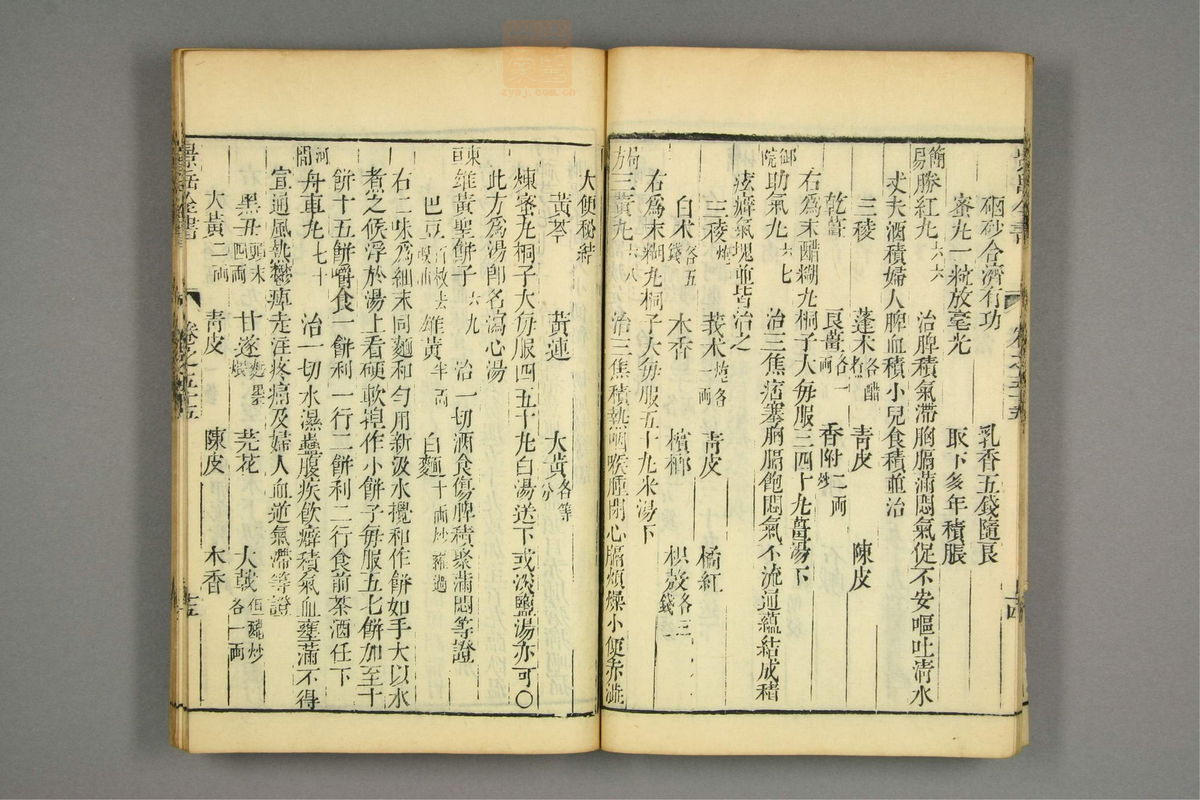 硇砂合濟有功　乳香五錢隨良
蜜丸一粒放毫光　取下多年積脹
簡易勝紅丸六六　治脾積氣滯胸膈滿悶氣促不安嘔吐清水
丈夫酒積婦人脾血積小兒食積並治
三稜　蓬朮各醋炒　青皮　陳皮
乾薑　良薑各一兩　香附炒二兩
右爲末醋糊丸桐子大每服三四十丸薑湯下
御院助氣丸六七　治三焦痞塞胸膈飽悶氣不流通蘊結成積
痃癖氣塊並皆治之
三稜炮　莪朮炮各一兩　青皮　橘紅
白朮各五錢　木香　檳榔　枳殼各三錢
右爲末糊丸桐子大每服五十丸米湯下
局方三黃丸六八　治三焦積熱咽喉腫閉心膈煩燥小便赤澁
大便秘結
黃芩　黃連　大黃各等分
煉蜜丸桐子大每服四五十丸白湯送下或淡鹽湯亦可〇
此方爲湯卽名瀉心湯
東垣雄黃聖餅子六九　治一切酒食傷脾積聚滿悶等證
巴豆　雄黃半兩　白麵十兩炒羅過
右二味爲細末同麵和勻用新汲水攪和作餅如手大以水
煮之候浮於湯上看硬軟揑作小餅子每服五七餅加至十
餅十五餅嚼食一餅利一行二餅利二行食前茶酒任下
河間舟車丸七十　治一切水濕蠱腹疾飲癖積氣血壅滿不得
宣通風熱鬱痺走注疼痛及婦人血逆氣滯等證
黑丑頭末四兩　甘遂麵裹煨　芫花　大戟俱醋炒各一兩
大黃二兩　青皮　陳皮　木香
景岳全書　卷之五十五